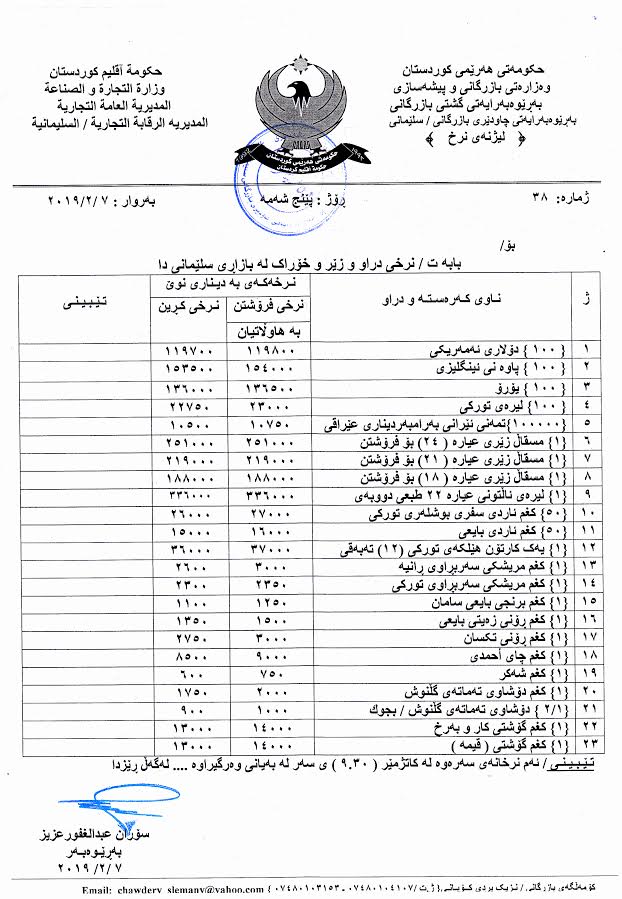 حكومەتى هەرێمى كوردستان
وەزارەتى بازرگانى و پيشەسازى
بەڕێوەبەرايەتى گشتى بازرگانى
بەڕێوەبەرايەتى چاودێرى بازرگانى / سلێمانى
﴿ لێژنەى نرخ ﴾
حكومة أقليم كوردستان
وزارة التجارة و الصناعة
المديرية العامة التجارية
المديريه الرقابة التجارية / السليمانية
حكومەتى هەرێمى كوردستان
حكومة اقليم كوردستان
ژمارە: ٣٨
ڕۆژ : پێنج شەمە
بەروار : ٢٠١٩/٢/٧
بۆ/
بابە ت / نرخى دراو و زێر و خۆراک لە بازاڕى سلێمانى دا
ژ ناوى كەرەستە و دراو نرخەكەى بە دينارى نوێ تێبينى
نرخى فرۆشتن بە هاوڵاتيان نرخى كڕين
١ {١٠٠} دۆلارى ئەمەريكى ١١٩٨٠٠ ١١٩٧٠٠
٢ {١٠٠} پاوە نى ئينگليزى ١٥٤٠٠٠ ١٥٣٥٠٠
٣ {١٠٠} يۆرۆ ١٣٦٥٠٠ ١٣٦٠٠٠
٤ {١٠٠} ليرەى توركى ٢٣٠٠٠ ٢٢٧٥٠
٥ {١٠٠٠٠٠}تمەنى ئێرانى بەرامبەردينارى عێراقى ١٠٧٥٠ ١٠٥٠٠
٦ {١} مسقاڵ زێرى عيارە (٢٤) بۆ فرۆشتن ٢٥١٠٠٠ ٢٥١٠٠٠
٧ {١} مسقاڵ زێرى عيارە (٢١) بۆ فرۆشتن ٢١٩٠٠٠ ٢١٩٠٠٠
٨ {١} مسقاڵ زێرى عيارە (١٨) بۆ فرۆشتن ١٨٨٠٠٠ ١٨٨٠٠٠
٩ {١} ليرەى ئاڵتونى عيارە ٢٢ طبعى دووبەى ٣٣٦٠٠٠ ٣٣٦٠٠٠
١٠ {٥٠} كغم ئاردى سفرى بوشلەرى توركى ٢٧٠٠٠ ٢٦٠٠٠
١١ {٥٠} كغم ئاردى بايعى ١٦٠٠٠ ١٥٠٠٠
١٢ {١} يەک كارتۆن هێلكەى توركى (١٢) تەبەقى ٣٧٠٠٠ ٣٦٠٠٠
١٣ {١} كغم مريشكى سەربڕاوى ڕانيە ٣٠٠٠ ٢٦٠٠
١٤ {١} كغم مريشكى سەربڕاوى توركى ٢٣٥٠ ٢٣٠٠
١٥ {١} كغم برنجى بايعى سامان ١٢٥٠ ١١٠٠
١٦ {١} كغم ڕۆنى زەيتى بايعى ١٥٠٠ ١٣٥٠
١٧ {١} كغم ڕۆنى تكسان ٣٠٠٠ ٢٧٥٠
١٨ {١} كغم چاى أحمدى ٩٠٠٠ ٨٥٠٠
١٩ {١} كغم شەكر ٧٥٠ ٦٠٠
٢٠ {١} كغم دۆشاوى تەماتەى گڵنوش ٢٠٠٠ ١٧٥٠
٢١ {٢/١} دۆشاوى تەماتەى گڵنوش / بجوک ١٠٠٠ ٩٠٠
٢٢ {١} كغم گۆشتى كار و بەرخ ١٤٠٠٠ ١٣٠٠٠
٢٣ {١} كغم گۆشتى ( قيمە ) ١٤٠٠٠ ١٣٠٠٠
تێبينى/ ئەم نرخانەى سەرەوە لە كاتژمێر ( ٩.٣٠ ) ى سەر لە بەيانى وەرگيراوە .... لەگەڵ ڕێزدا
سۆران عبدالغفورعزيز
بەڕێوەبەر
٢٠١٩/٢/٧
كۆمەڵگەى بازرگانى/ نزيک بردى كۆبانى.{ژ.ت/ ٠٧٤٨٠١٠٤١٠٧ ـ ٠٧٤٨٠١٠٣١٥٣ } Email: chawdery_slemany@yahoo.com